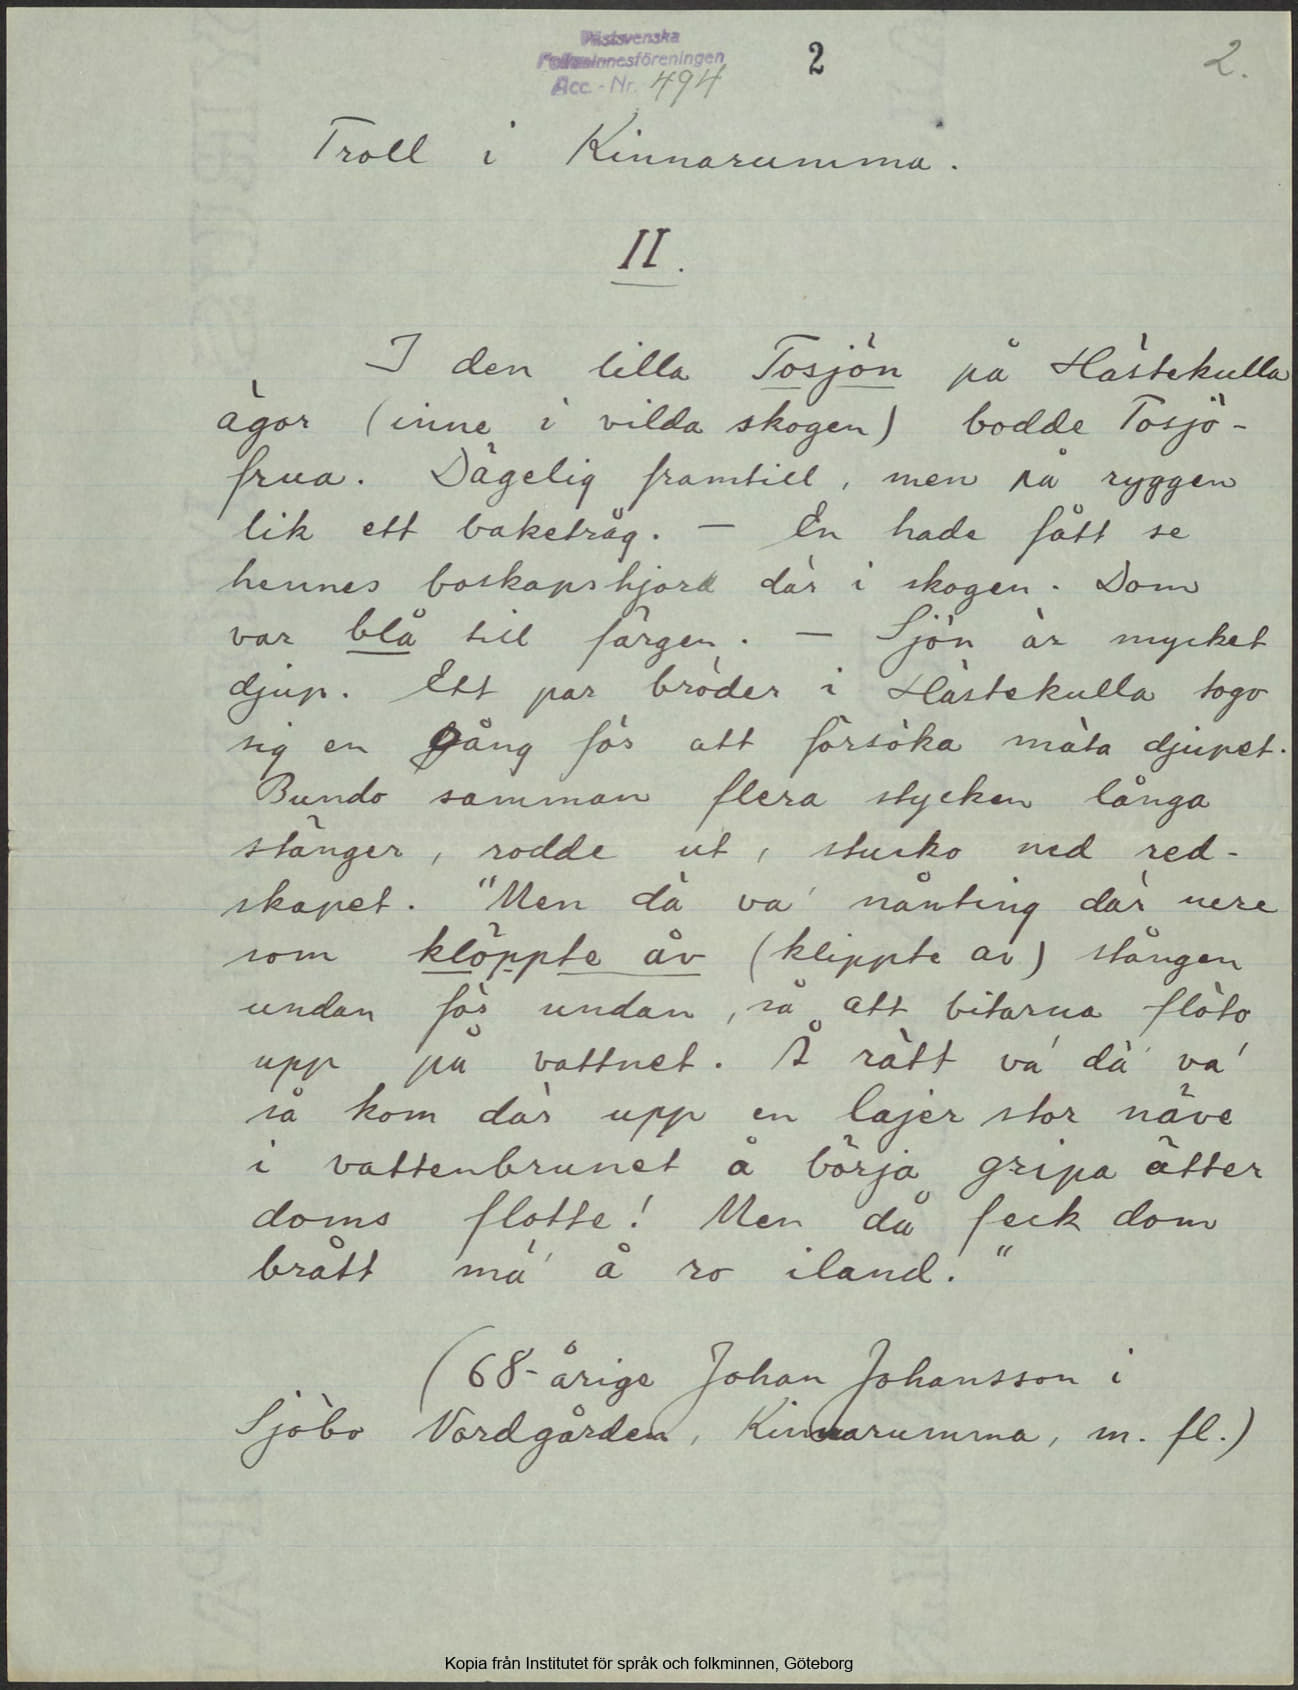 Västsvenska
Folkminnesföreningen
Acc.-Nr. 494
2
2.
Troll i Kinnarumma.
II.
I den lilla Tosjön på Hästekulla
ägor (inne i vilda skogen) bodde Tosjö-
frua. Dägelig framtill, men på ryggen
lik ett baketråg. — En hade fått se
hennes boskapshjord där i skogen. Dom
var blå till färgen. — Sjön är mycket
djup. Ett par bröder i Hästekulla togo
sig en gång för att försöka mäta djupet.
Bundo samman flera stycken långa
stänger, rodde ut, stucko ned red-
skapet. "Men dä va' nånting där nere
som klöppte åv (klippte av) stången
undan för undan, så att bitarna flöto
upp på vattnet. Å rätt va' dä' va'
så kom där upp en lajer stor näve
i vattenbrunet å börja gripa ätter
doms flotte! Men då feck dom
brått mä' å ro iland."
(68-årige Johan Johansson i
Sjöbo Nordgården, Kinnarumma, m. fl.)
Kopia från Institutet för språk och folkminnen, Göteborg